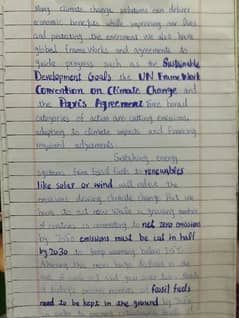 Many climate change solutions can deliver
economic benefits while improving our lives
and protecting the enviroment. We also have
global frameworks and agreements to
guide progress such as the Sustainable
Development Goals the UN Framework
Convention on Climate Change and
the Paris Agreement. Three broad
categories of action are cutting emissions,
adapting to climate impacts and financing
required adjustments.
Switching energy
systems from fossil fuels to renewables
like solar or wind will reduce the
emissions driving climate change. But we
have to act now. While a growing number
of countries is commiting to net zero emissions
by 2050 emissions must be cut in half
by 2030 to keep warming below 1.5°C.
fossil fuels
need to be kept in the ground by 2050